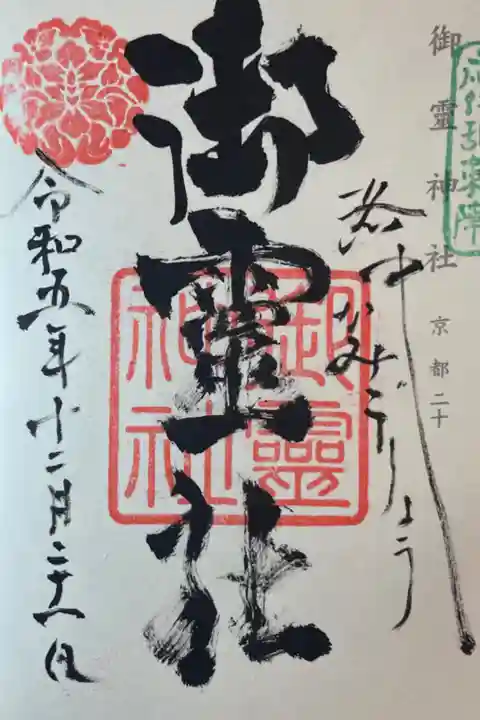 御靈神社 京都二十
洛中かみごりょう
御靈社
御靈神社
令和五年十二月二十八日